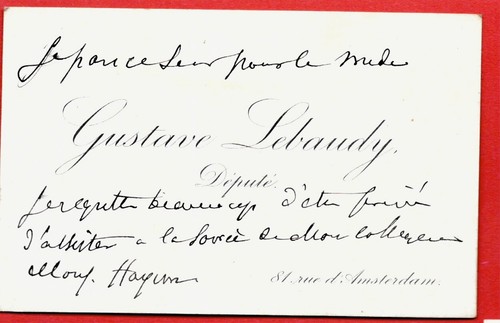 Je pour le
Gustave Lebaudy,
Député.
Je regrette beaucoup d'être privé
d'assister a la Soirée de Mon collègue
Mons.
81 rue d'Amsterdam.